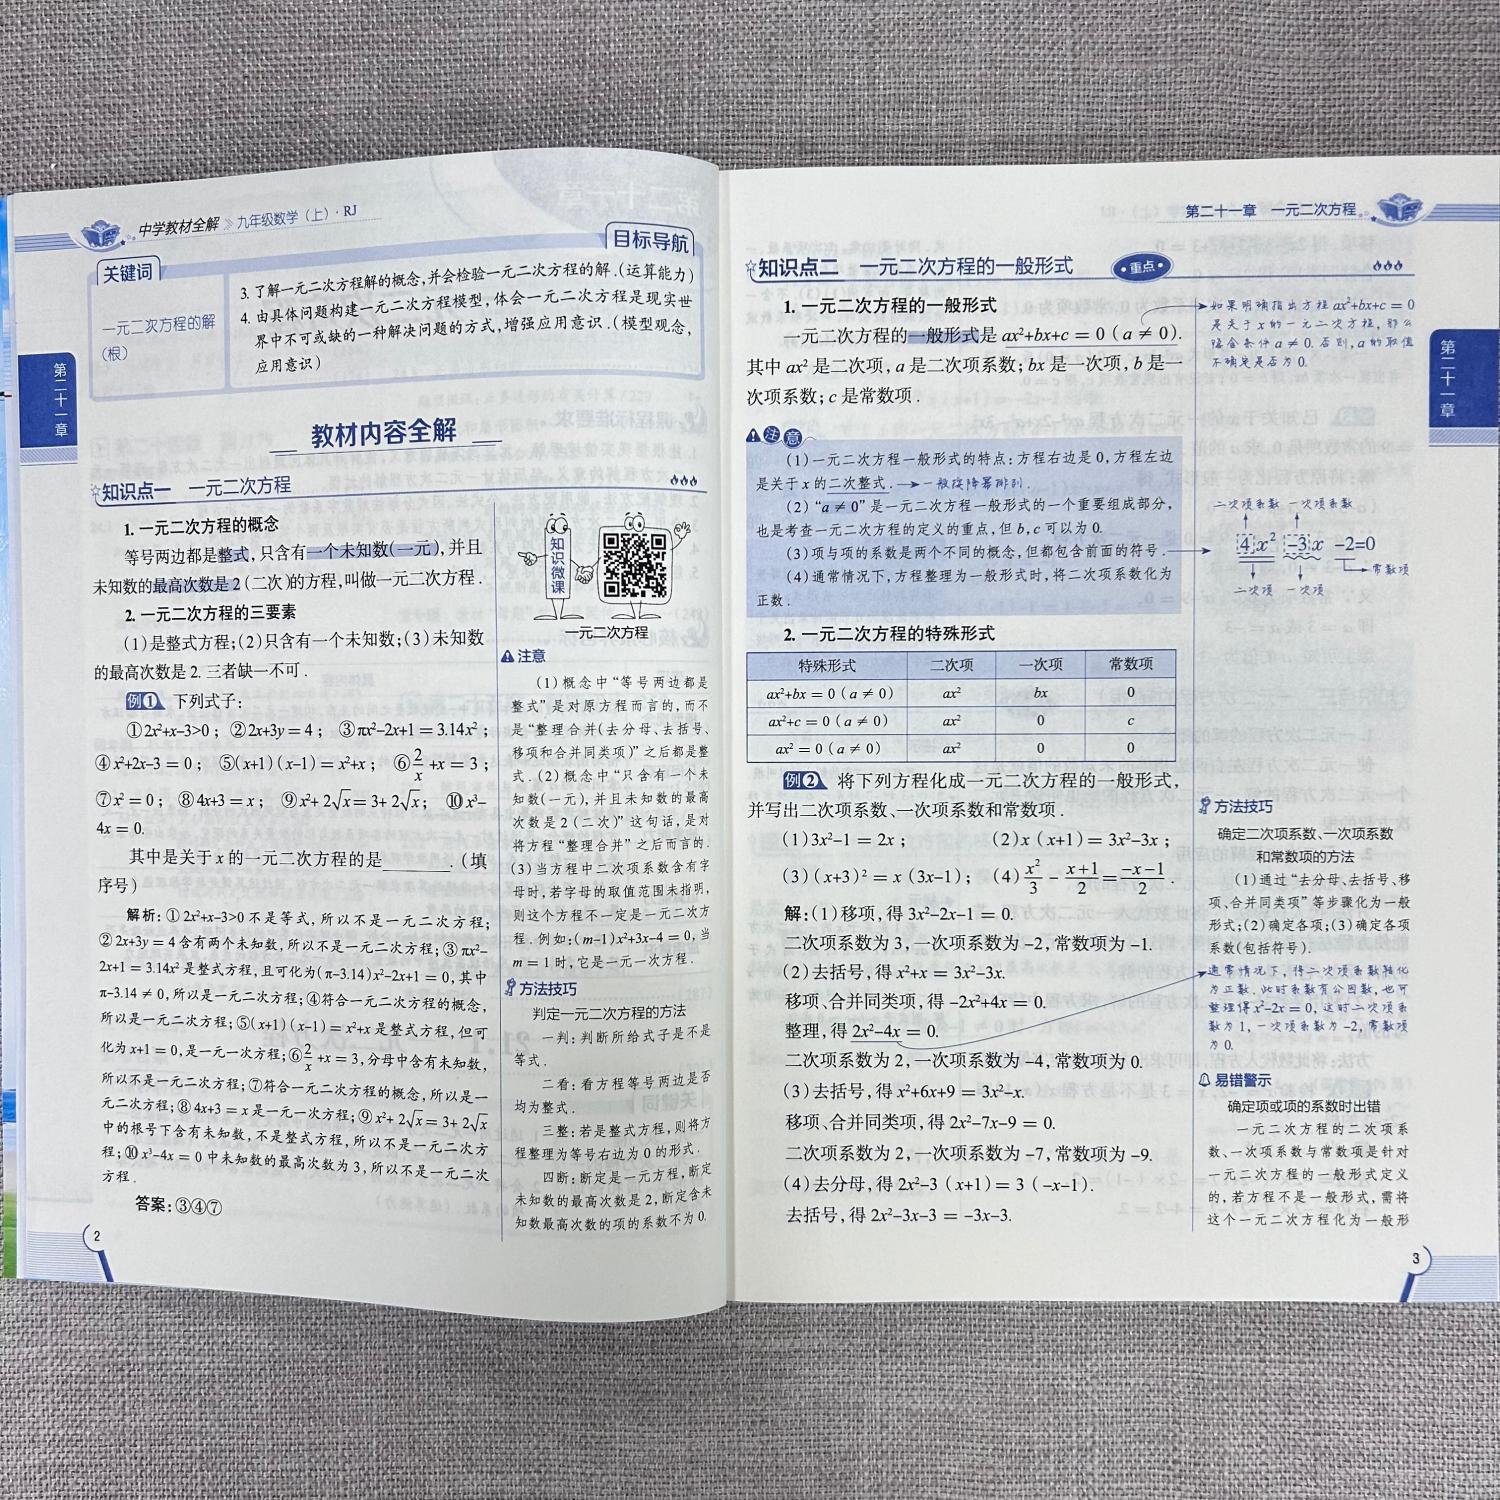 中学教材全解 》九年级数学(上)·RJ
目标导航
关键词
一元二次方程的解
(根)
3.了解一元二次方程解的概念,并会检验一元二次方程的解.(运算能力)
4.由具体问题构建一元二次方程模型,体会一元二次方程是现实世
界中不可或缺的一种解决问题的方式,增强应用意识.(模型观念,
应用意识)
第二十一章
教材内容全解
知识点一 一元二次方程
1.一元二次方程的概念
等号两边都是整式,只含有一个未知数(一元),并且
未知数的最高次数是2(二次)的方程,叫做一元二次方程.
2.一元二次方程的三要素
(1)是整式方程;(2)只含有一个未知数;(3)未知数
的最高次数是2.三者缺一不可.
例1 下列式子:
①2x²+x-3>0; ②2x+3y=4; ③πx²-2x+1=3.14x²;
④x²+2x-3=0; ⑤(x+1)(x-1)=x²+x; ⑥2/x+x=3;
⑦x²=0; ⑧4x+3=x; ⑨x²+2√x=3+2√x; ⑩x³-
4x=0.
其中是关于x的一元二次方程的是______.(填
序号)
解析:①2x²+x-3>0不是等式,所以不是一元二次方程;
②2x+3y=4含有两个未知数,所以不是一元二次方程;③πx²-
2x+1=3.14x²是整式方程,且可化为(π-3.14)x²-2x+1=0,其中
π-3.14≠0,所以是一元二次方程;④符合一元二次方程的概念,
所以是一元二次方程;⑤(x+1)(x-1)=x²+x是整式方程,但可
化为x+1=0,是一元一次方程;⑥2/x+x=3,分母中含有未知数,
所以不是一元二次方程;⑦符合一元二次方程的概念,所以是一
元二次方程;⑧4x+3=x是一元一次方程;⑨x²+2√x=3+2√x
中的根号下含有未知数,不是整式方程,所以不是一元二次方
程;⑩x³-4x=0中未知数的最高次数为3,所以不是一元二次
方程.
答案:③④⑦
知识微课
一元二次方程
注意
(1)概念中“等号两边都是
整式”是对原方程而言的,而不
是“整理合并(去分母、去括号、
移项和合并同类项)”之后都是整
式.(2)概念中“只含有一个未
知数(一元),并且未知数的最高
次数是2(二次)”这句话,是对
将方程“整理合并”之后而言的.
(3)当方程中二次项系数含有字
母时,若字母的取值范围未指明,
则这个方程不一定是一元二次方
程.例如:(m-1)x²+3x-4=0,当
m=1时,它是一元一次方程.
方法技巧
判定一元二次方程的方法
一判:判断所给式子是不是
等式.
二看:看方程等号两边是否
均为整式.
三整:若是整式方程,则将方
程整理为等号右边为0的形式.
四断:断定是一元方程,断定
未知数的最高次数是2,断定含未
知数最高次数的项的系数不为0.
2
第二十一章 一元二次方程
知识点二 一元二次方程的一般形式 ·重点·
1.一元二次方程的一般形式
一元二次方程的一般形式是ax²+bx+c=0(a≠0).
其中ax²是二次项,a是二次项系数;bx是一次项,b是一
次项系数;c是常数项.
注意
(1)一元二次方程一般形式的特点:方程右边是0,方程左边
是关于x的二次整式.→一般按降幂排列.
(2)“a≠0”是一元二次方程一般形式的一个重要组成部分,
也是考查一元二次方程的定义的重点,但b,c可以为0.
(3)项与项的系数是两个不同的概念,但都包含前面的符号.
(4)通常情况下,方程整理为一般形式时,将二次项系数化为
正数.
2.一元二次方程的特殊形式
特殊形式 二次项 一次项 常数项
ax²+bx=0(a≠0) ax² bx 0
ax²+c=0(a≠0) ax² 0 c
ax²=0(a≠0) ax² 0 0
例2 将下列方程化成一元二次方程的一般形式,
并写出二次项系数、一次项系数和常数项.
(1)3x²-1=2x; (2)x(x+1)=3x²-3x;
(3)(x+3)²=x(3x-1); (4)x²/3-(x+1)/2=(-x-1)/2.
解:(1)移项,得3x²-2x-1=0.
二次项系数为3,一次项系数为-2,常数项为-1.
(2)去括号,得x²+x=3x²-3x.
移项、合并同类项,得-2x²+4x=0.
整理,得2x²-4x=0.
二次项系数为2,一次项系数为-4,常数项为0.
(3)去括号,得x²+6x+9=3x²-x.
移项、合并同类项,得2x²-7x-9=0.
二次项系数为2,一次项系数为-7,常数项为-9.
(4)去分母,得2x²-3(x+1)=3(-x-1).
去括号,得2x²-3x-3=-3x-3.
如果明确指出方程ax²+bx+c=0
是关于x的一元二次方程,那么
隐含条件a≠0.否则,a的取值
不确定是否为0.
二次项系数 一次项系数
4x² -3x -2=0
常数项
二次项 一次项
方法技巧
确定二次项系数、一次项系数
和常数项的方法
(1)通过“去分母、去括号、移
项、合并同类项”等步骤化为一般
形式;(2)确定各项;(3)确定各项
系数(包括符号).
通常情况下,将二次项系数转化
为正数.此时系数有公因数,也可
整理得x²-2x=0,这时二次项系
数为1,一次项系数为-2,常数项
为0.
易错警示
确定项或项的系数时出错
一元二次方程的二次项系
数、一次项系数与常数项是针对
一元二次方程的一般形式定义
的,若方程不是一般形式,需将
这个一元二次方程化为一般形
第二十一章
3